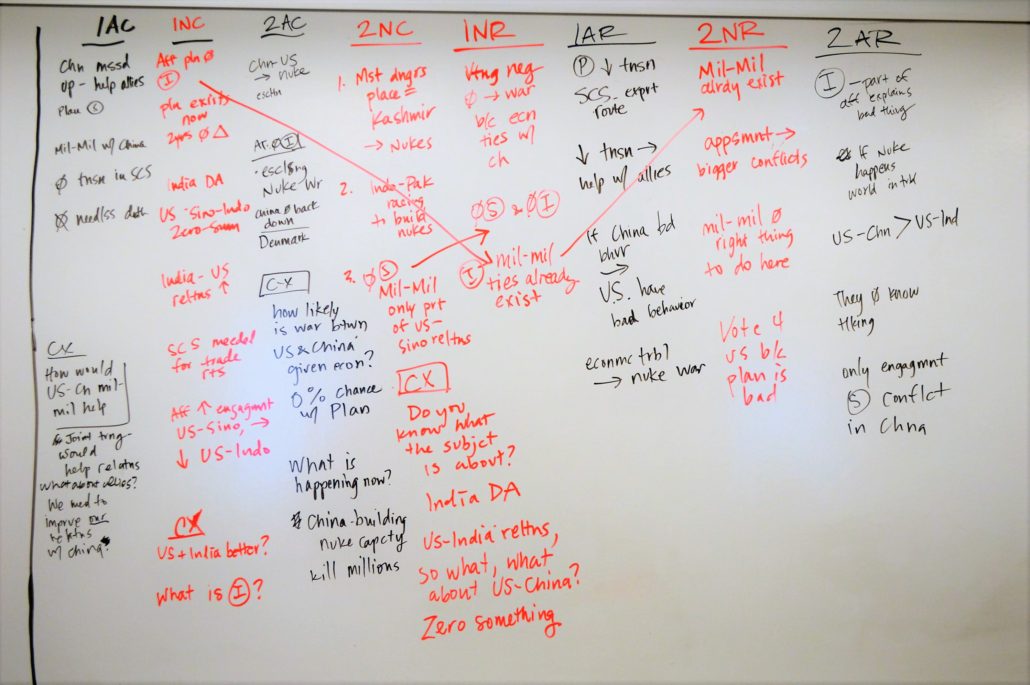 1AC
Chn mssd
op - help allies
Plan Ⓢ
Mil-Mil w/ China
∅ tnsn in SCS
∅ needlss deth
CX
How would
US-Ch mil-
mil help
Joint trng
would
help relatns
what about allies?
We need to
improve our
relatns
w/ china?
1NC
Aff pln ∅
Ⓘ
pln exists
now
2yrs ∅ △
India DA
US-Sino-Indo
Zero-sum
India-US
reltns ↑
SCS needed
for trade
rts
Aff ↑ engagmnt
US-Sino, →
↓ US-Indo
CX
US+India better?
What is Ⓘ?
2AC
Chn-US
→ nuke
escltn
AT: ∅ Ⓘ
esclsng
Nuke Wr
China ∅ back
down
Denmark
C-X
how likely
is war btwn
US & China
given econ?
0% chance
w/ Plan
What is
happening now?
China-building
nuke capcty
kill millions
2NC
1. Mst dngrs
place =
Kashmir
→ Nukes
2. Indo-Pak
racing
to build
nukes
3. ∅ Ⓢ
Mil-Mil
only prt
of US-
Sino reltns
CX
Do you
know what
the subjct
is about?
India DA
US-India reltns,
so what, what
about US-China?
Zero something
1NR
Vtng neg
∅ → war
b/c ecn
ties w/
ch
∅Ⓢ & ∅Ⓘ
Ⓘ mil-mil
ties already
exist
1AR
Ⓟ ↓ tnsn
SCS - exprt
route
↓ tnsn →
help w/ allies
If China bd
bhvr
→
U.S. have
bad behavior
econmc trbl
→ nuke war
2NR
Mil-Mil
alrdy exist
appsmnt →
bigger conflicts
mil-mil ∅
right thing
to do here
Vote 4
us b/c
plan is
bad
2AR
Ⓘ - part of
aff explains
bad thing
If Nuke
happens
world in trbl
US-Chn > US-Ind
They ∅ know
tlking
only engagmnt
Ⓢ conflct
in Chna